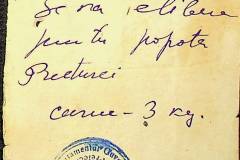 Se va elibera
pentru popota
Preturei
carne - 3 kg.